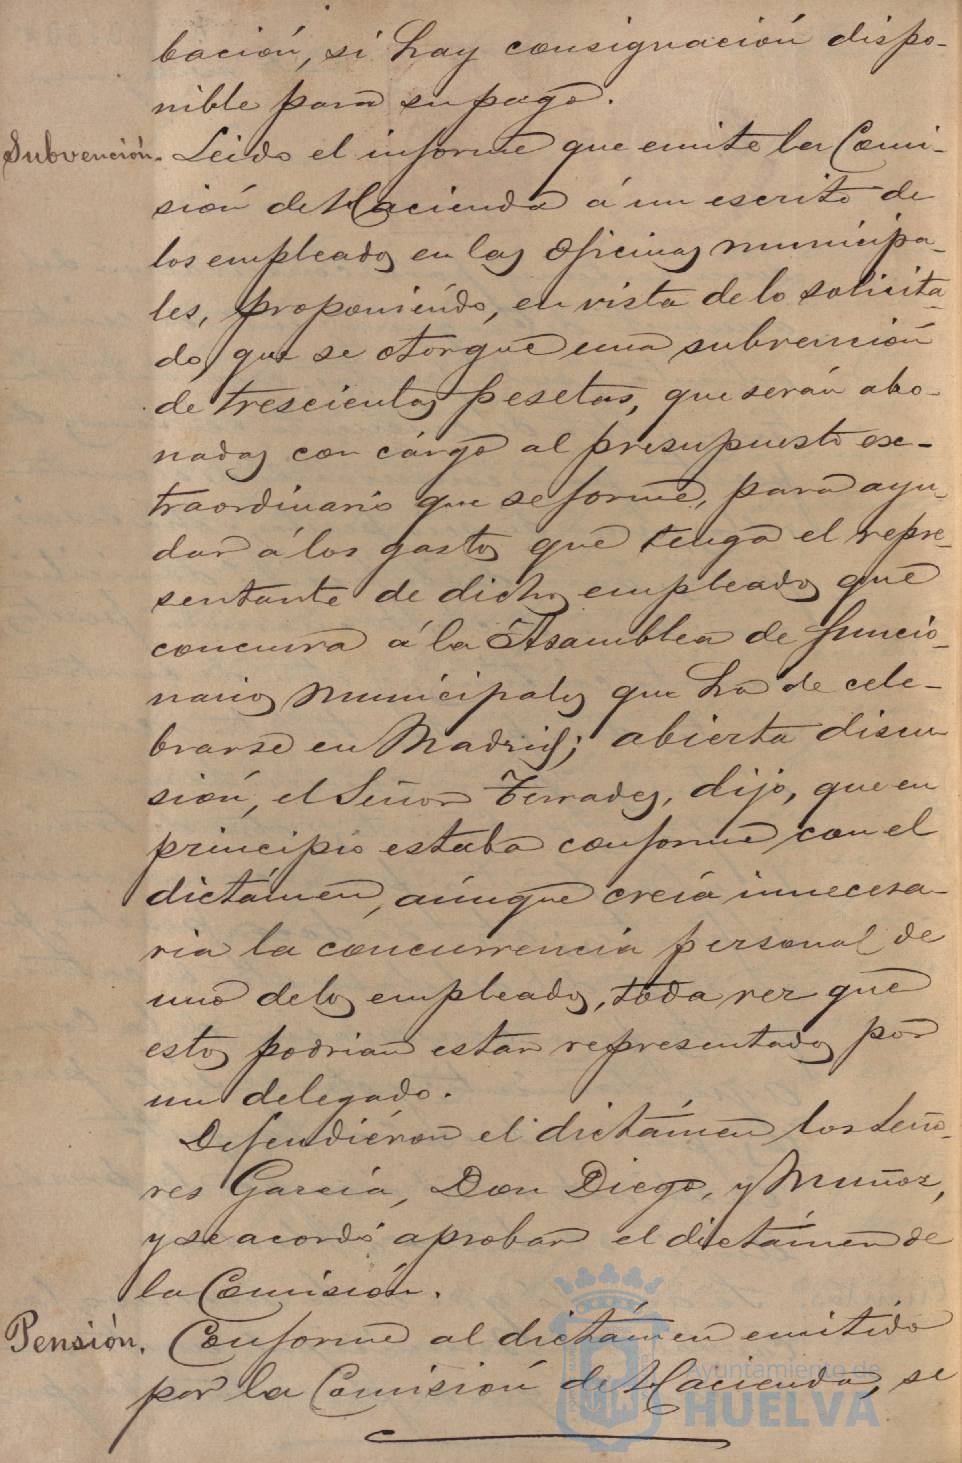 bación, si hay consignación dispo-
nible para su pago.
Subvención. Leido el informe que emite la Comi-
sión de Hacienda á un escrito de
los empleados en las oficinas municipa-
les, proponiéndo, en vista de lo solicita-
do, que se otorgue una subvención
de trescientas pesetas, que serán abo-
nadas con cárgo al presupuesto ex-
traordinario que se forme, para ayu-
dar á los gastos que tenga el repre-
sentante de dichos empleados que
concurra á la Asamblea de funcio-
narios municipales que ha de cele-
brarse en Madrid; abierta discu-
sión, el Señor Terrades, dijo, que en
principio estaba conforme con el
dictámen, aúnque creía innecesa-
ria la concurrencia personal de
uno de los empleados, toda vez que
estos podrian estar representados por
un delegado.
Defendiéron el dictámen los Seño-
res García, Don Diego, y Muñoz,
y se acordó aprobar el dictámen de
la Comisión.
Pensión. Conforme al dictámen emitido
por la Comisión de Hacienda, se
Ayuntamiento de
HUELVA